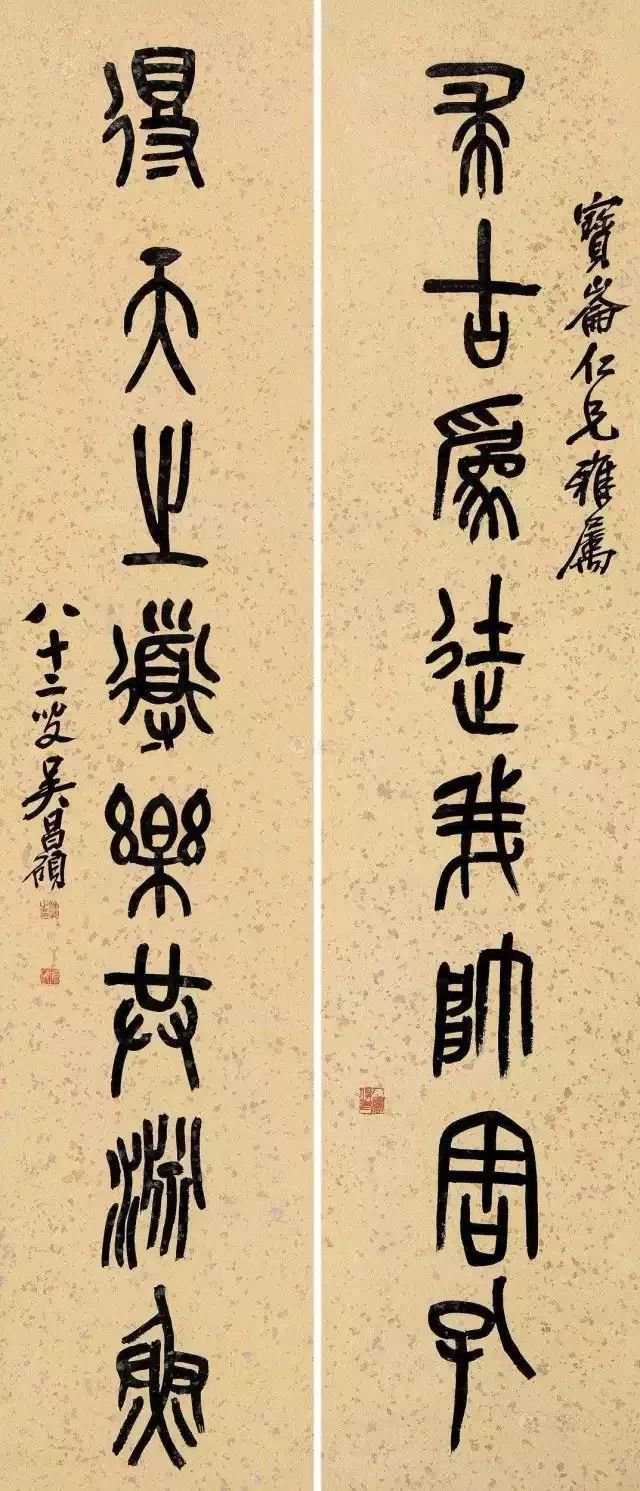 寶崙仁兄雅屬
求古為徒我帥周孔
得天之導樂共魚
八十二叟吳昌碩